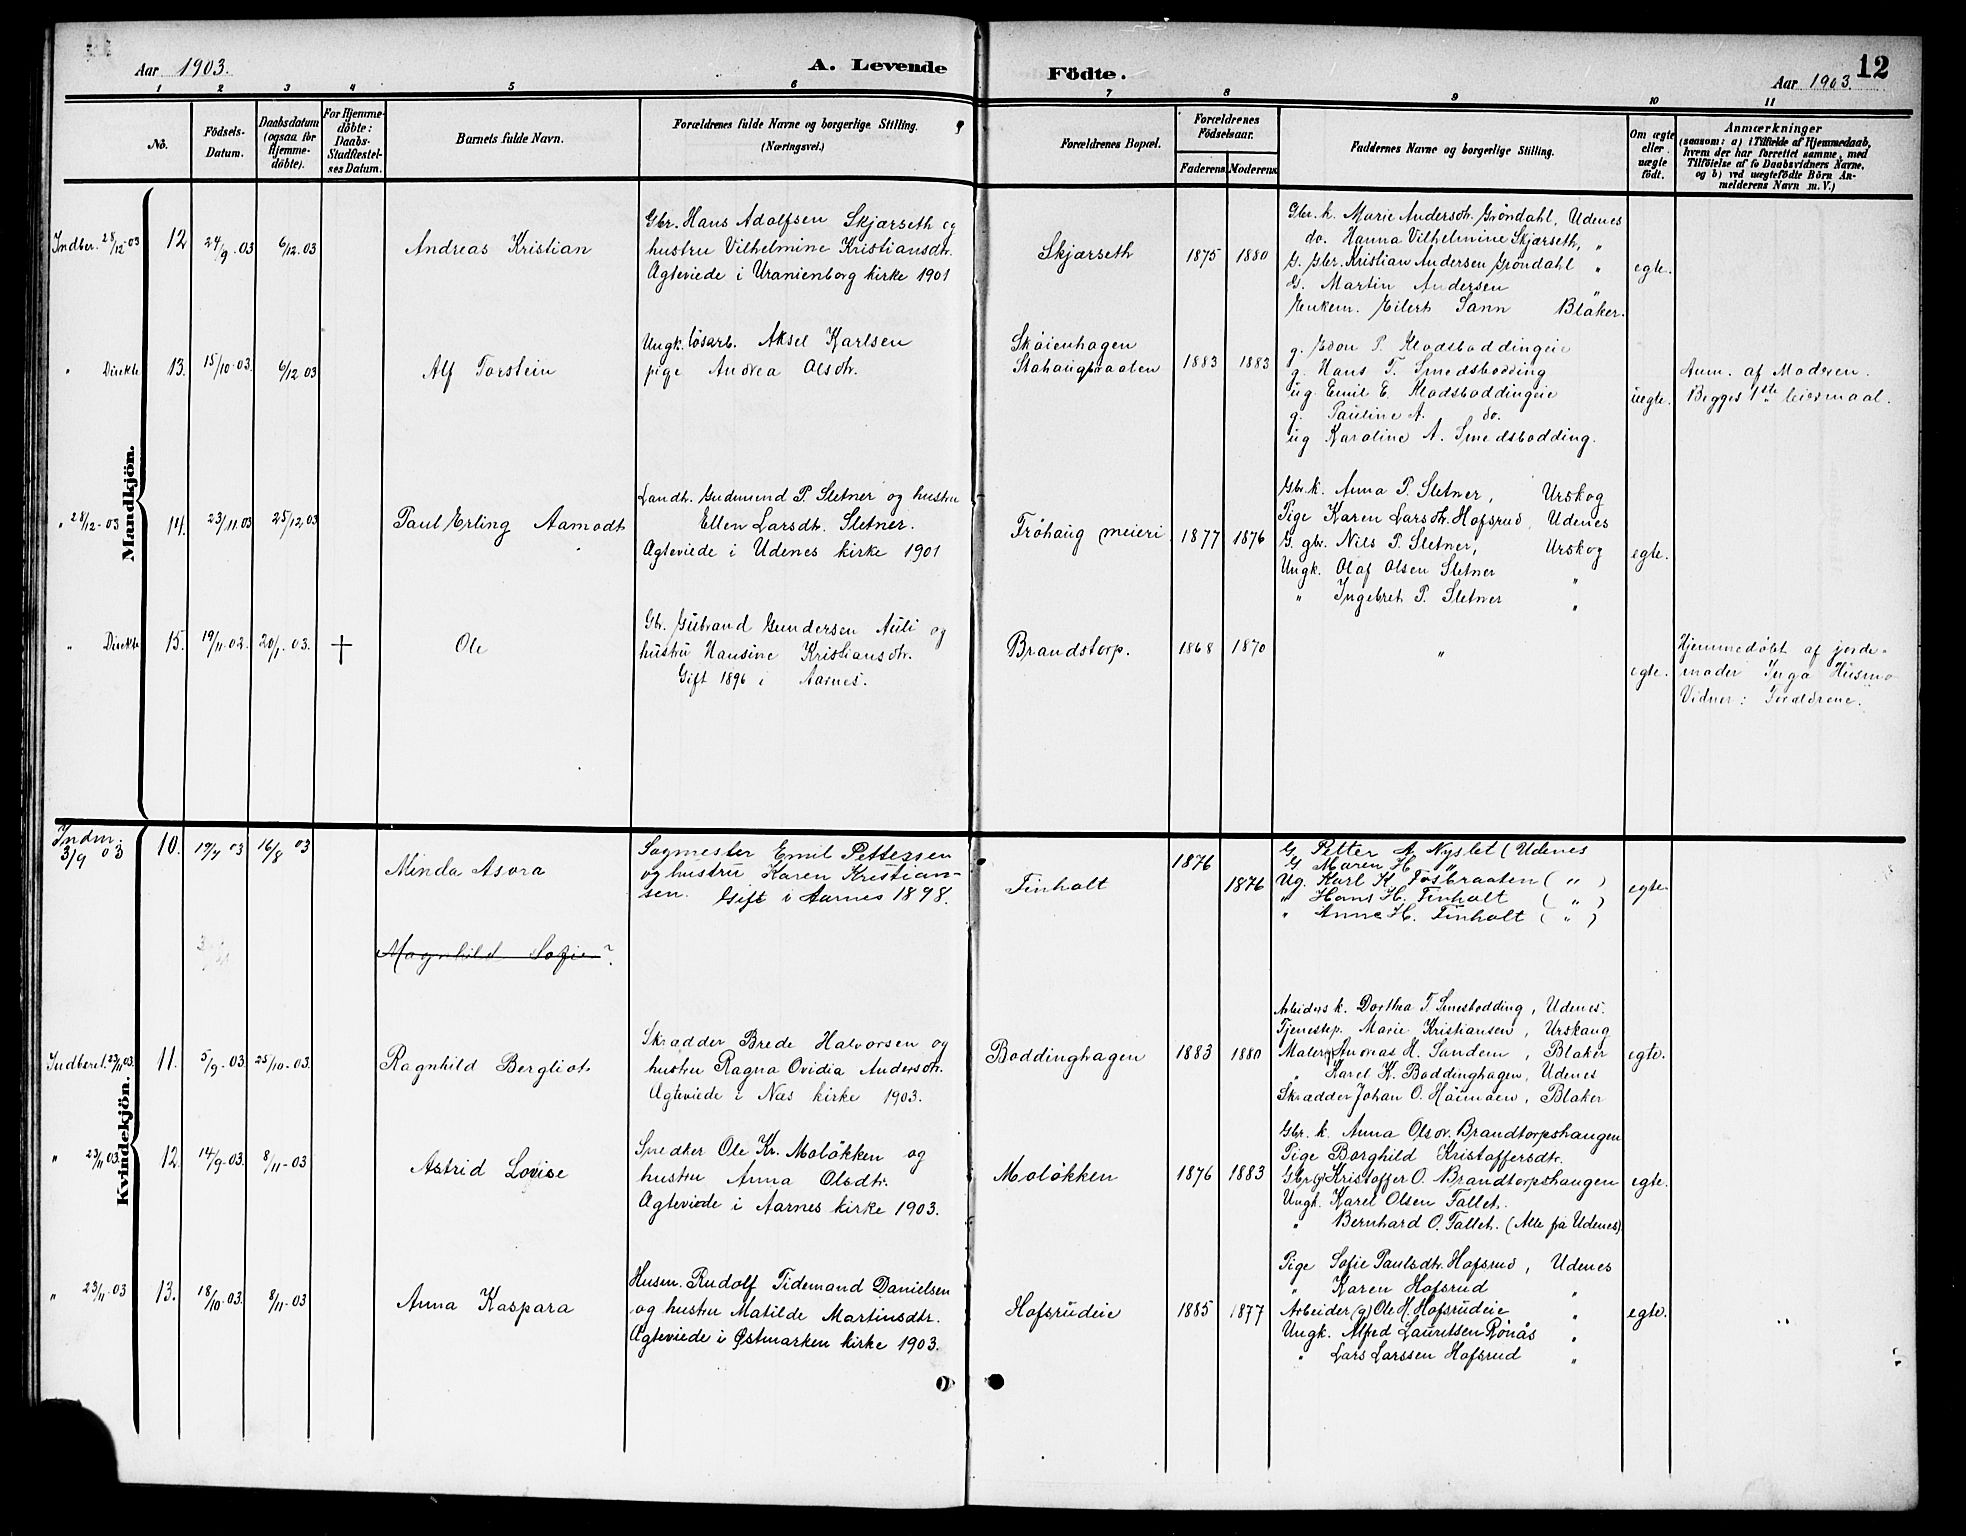 Aar 1903.
A. Levende Födte.
12
Aar 1903.
1 2 3 4 5 6 7 8 9 10 11
No.
Födsels-Datum.
Daabsdatum (ogsaa for Hjemme-döbte).
For Hjemme-döbte: Daabs-Stadfæstel-ses Datum.
Barnets fulde Navn.
Forældrenes fulde Navne og borgerlige Stilling.
(Næringsvei.)
Forældrenes Bopæl.
Forældrenes Födselsaar.
Faderens. Moderens.
Faddernes Navne og borgerlige Stilling.
Om ægte eller uægte födt.
Anmærkninger
(saasom: a) i Tilfælde af Hjemmedaab,
hvem der har forrettet samme, med
Tilföielse af to Daabsvidners Navne,
og b) ved uægtefödte Börn An-
melderens Navn m. V.)
Mandkjön.
Indber. 28/12-03 12 24/9-03 6/12 03
Andreas Kristian
Gbr. Hans Adolfsen Skjærseth og
hustru Vilhelmine Kristiansdtr.
Ægteviede i Uranienborg kirke 1901
Skjærseth 1875 1880
Gbr. k. Marie Andersdtr. Grøndahl, Udenes
do. Hanna Vilhelmine Skjærseth, "
G. Gbr. Kristian Andersen Grøndahl "
G. Martin Andersen "
Enkem. Eilert Sann Blaker.
egte.
" Direkte 13. 15/10-03 6/12 03
Alf Torstein
Ungk. løsarb. Aksel Karlsen
pige Andrea Olsdtr.
Skøienhagen
Stahaugbraaten 1883 1883
g. Edon P. Klodsboddingeie
g. Hans T. Smedsbodding
ug. Emil E. Klodsboddingeie
g. Pauline A. do.
ug Karoline A. Smedsbodding.
uegte.
Anm. af Moderen.
Begges 1ste leiermaal.
" 28/12-03 14. 23/11 03 25/12 03
Paul Erling Aamodt
Landh. Gudmund P. Sletner og hustru
Ellen Larsdtr. Sletner.
Ægteviede i Udenes kirke 1901
Frøhaug meieri 1877 1876
Gbr. k. Anna P. Sletner, Urskog
Pige Karen Larsdtr. Hofsrud, Udenes
G. gbr. Nils P. Sletner, Urskog
Ungk. Olaf Olsen Sletner "
" Ingebret P. Sletner "
egte.
" Direkte 15. 19/11-02. 20/1 03. +
Ole
Gbr. Gubrand Gundersen Auli og
hustru Hansine Kristiansdtr.
Gift 1896 i Aarnes.
Brandstorp. 1868 1870
"
egte.
Hjemmedøbt af jorde-
moder Inga Husmo
Vidner: Forældrene.
Kvindekjön.
Indm. 3/9 03 10. 19/7 03 16/8 03
Minda Asora
Sagmester Emil Pettersen
og hustru Karen Kristian-
sen. Gift i Aarnes 1898.
Finholt 1876 1876
G Petter A Nyslet (Udenes
G Maren H. "
Ug. Karl K. Fosbraaten ( " )
" Hans H. Finholt ( " )
" Anne H. Finholt ( " )
egte.
Magnhild Sofie?
Indberet. 23/11 03. 11. 5/9-03. 25/10-03.
Ragnhild Bergliot
Skrædder Brede Halvorsen og
hustru Ragna Ovidia Andersdtr.
Ægteviede i Næs kirke 1903.
Boddinghagen 1883 1880
Arbeiders k. Dorthea T. Smesbodding, Udenes.
Tjenestep. Marie Kristiansen, Urskaug
Maler Andreas H. Sandem, Blaker
" Karel K. Boddinghagen, Udenes
Skrædder Johan O. Høimoen, Blaker
egte.
" 23/11 03. 12. 14/9-03. 8/11-03
Astrid Lovise
Snedker Ole Kr. Moløkken og
hustru Anna Olsdtr.
Ægteviede i Aarnes kirke 1903.
Moløkken 1876 1883
Gbr. k. Anna Olsdtr. Brandtorpshaugen
Pige Borghild Kristoffersdtr.
Gbr (g) Kristoffer O. Brandtorpshaugen
Ungk. Karel Olsen Fallet.
" Bernhard O. Fallet. (Alle fra Udenes)
egte.
" 23/11-03 13. 18/10-03. 8/11-03
Anna Kaspara
Husm. Rudolf Tidemand Danielsen
og hustru Matilde Martinsdtr.
Ægteviede i Østmarken kirke 1903.
Hofsrudeie 1885 1877
Pige Sofie Paulsdtr. Hofsrud, Udenes
" Karen Hofsrud "
Arbeider (g) Ole H. Hofsrudeie "
Ungk. Alfred Lauritsen Rønås "
" Lars Larssen Hofsrud "
egte.